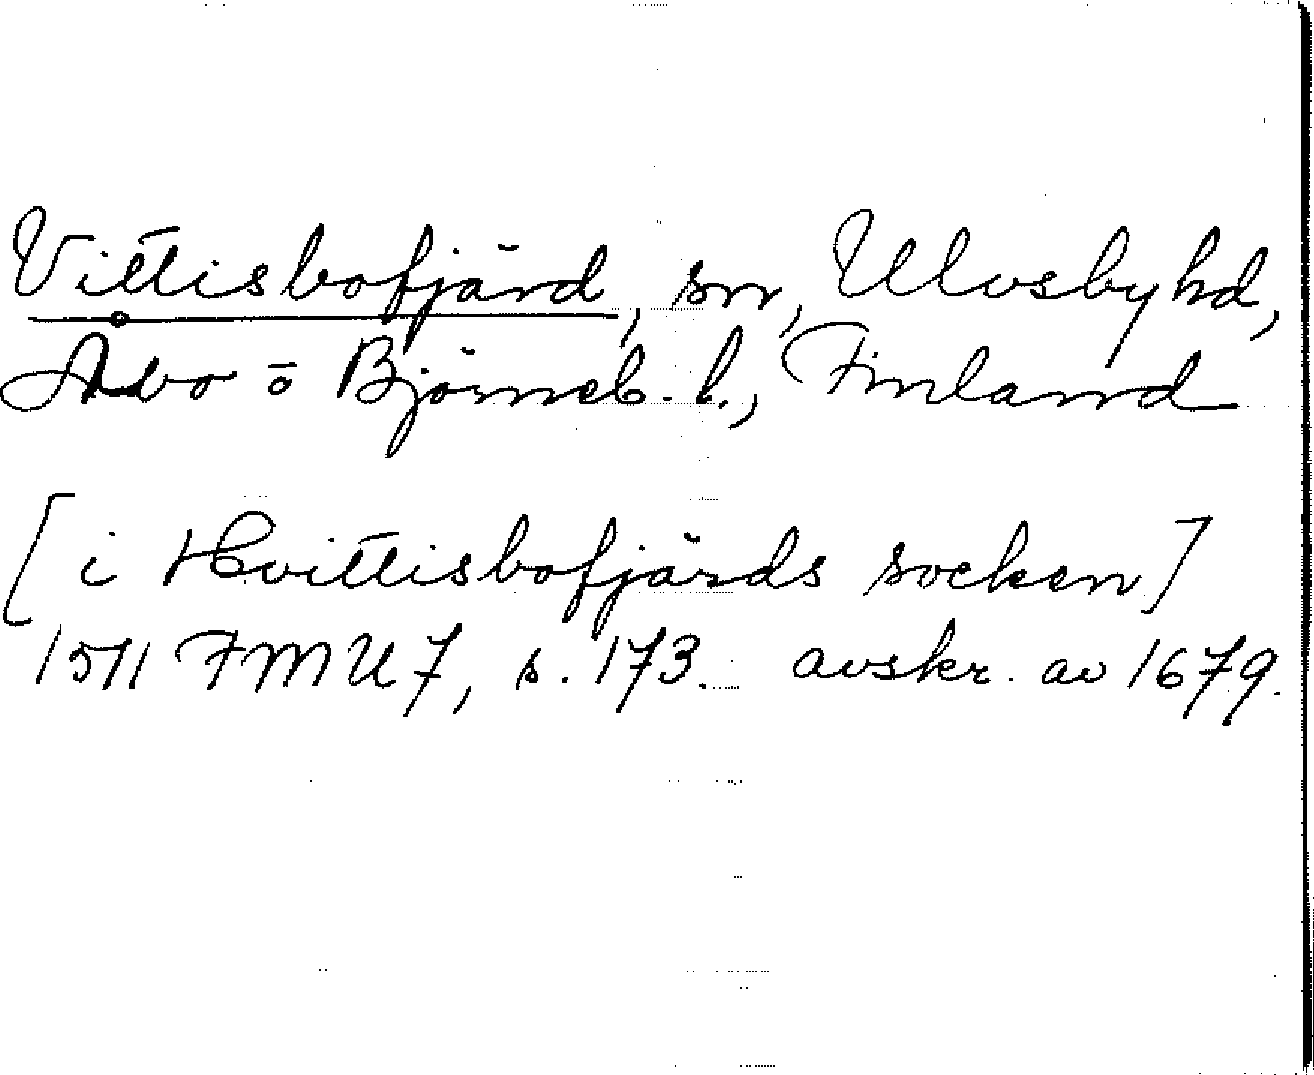 Vittisbofjärd, sn, Ulvsby hd,
Åbo o Björneb. l., Finland
[i Hvittisbofjärds socken]
1511 FMU 7, s. 173. avskr. av 1679.